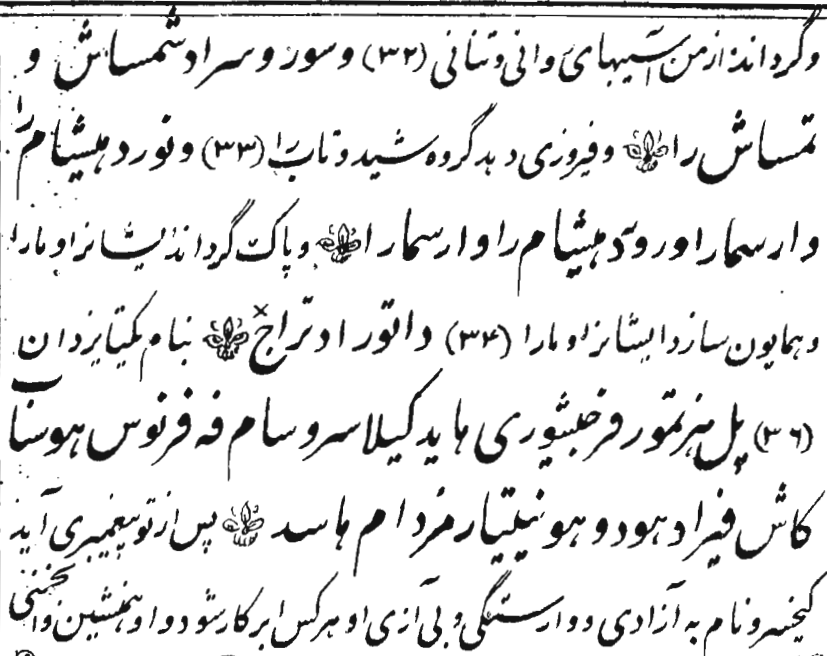 وگرداند از من آسیبهای روانی و تنانی (۳۲) و سور و سراد شمساش و
تمساش را و فیروزی دهد گروه شید و تاب را (۳۳) و نورد هیشام را
وارسمار او رود هیشام را وارسمار ا و پاک گرداند ایشانرا و مارا
و همایون سازد ایشانرا و مارا (۳۴) دانورادتراج بنام یکتا یزدان
(۳۶) پل هزتمور فرجیشوری هاید کیلاسروسام فه فرنوس هوسناب
کاش فیراد هود و هونیتیار مزدام هاسد پس از تو پیغمبری آید
کیخسرو نام به آزادی و وارستگی و بی آزی او هرکس ابر کار شود و او همنشین